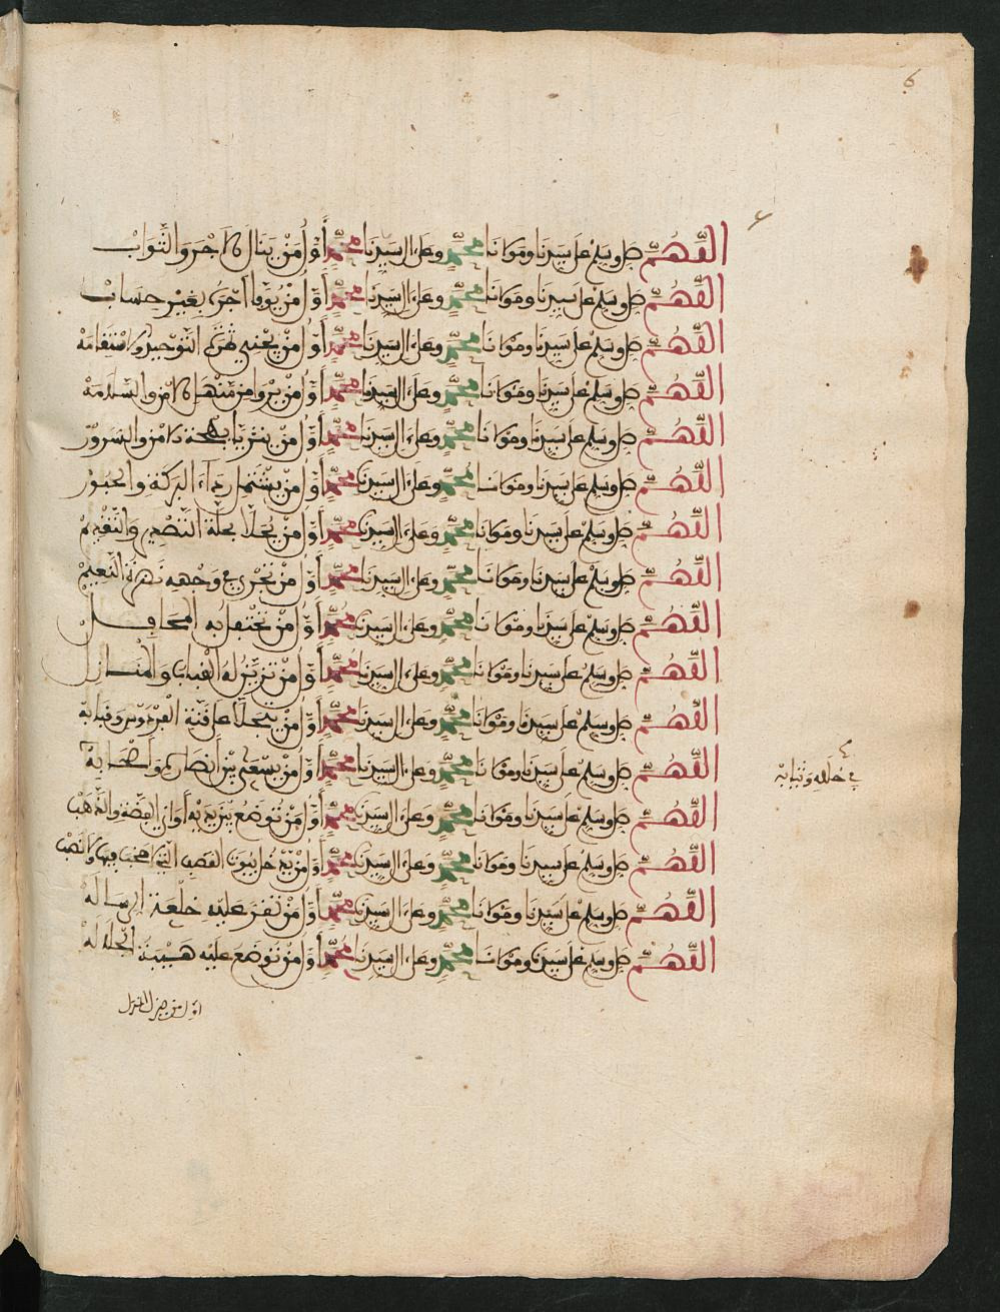 6
اللهم صل وسلم على سيدنا ومولانا محمد وعلى ءال سيدنا محمد أول من ينال الاجر والثواب
اللهم صل وسلم على سيدنا ومولانا محمد وعلى ءال سيدنا محمد أول من يوفا أجره بغير حساب
اللهم صل وسلم على سيدنا ومولانا محمد وعلى ءال سيدنا محمد أول من يجني ثمرة التوحيد والاستقامة
اللهم صل وسلم على سيدنا ومولانا محمد وعلى ءال سيدنا محمد أول من يروا من منهل الامن والسلامة
اللهم صل وسلم على سيدنا ومولانا محمد وعلى ءال سيدنا محمد أول من يتزيا ببهجة الامن والسرور
اللهم صل وسلم على سيدنا ومولانا محمد وعلى ءال سيدنا محمد أول من يشتمل رداء البركة والحبور
اللهم صل وسلم على سيدنا ومولانا محمد وعلى ءال سيدنا محمد أول من يحلا بحلة والتقديم
اللهم صل وسلم على سيدنا ومولانا محمد وعلى ءال سيدنا محمد أول من تجري في وجهه نضرة النعيم
اللهم صل وسلم على سيدنا ومولانا محمد وعلى ءال سيدنا محمد أول من تحتفل به المحافل
اللهم صل وسلم على سيدنا ومولانا محمد وعلى ءال سيدنا محمد أول من تزين له القباب والمنازل
اللهم صل وسلم على سيدنا ومولانا محمد وعلى ءال سيدنا محمد أول من يتجلا على الفردوس وقبابه
اللهم صل وسلم على سيدنا ومولانا محمد وعلى ءال سيدنا محمد أول من بين أنصاره وأصحابه
اللهم صل وسلم على سيدنا ومولانا محمد وعلى ءال سيدنا محمد أول من توضع بين يديه أواني الفضة والذهب
اللهم صل وسلم على سيدنا ومولانا محمد وعلى ءال سيدنا محمد أول من القصب التي لا صخب فيها ولا نصب
اللهم صل وسلم على سيدنا ومولانا محمد وعلى ءال سيدنا محمد أول من عليه خلعة الرسالة
اللهم صل وسلم على سيدنا ومولانا محمد وعلى ءال سيدنا محمد أول من توضع عليه هيبة الجلالة
في حلله وثيابه